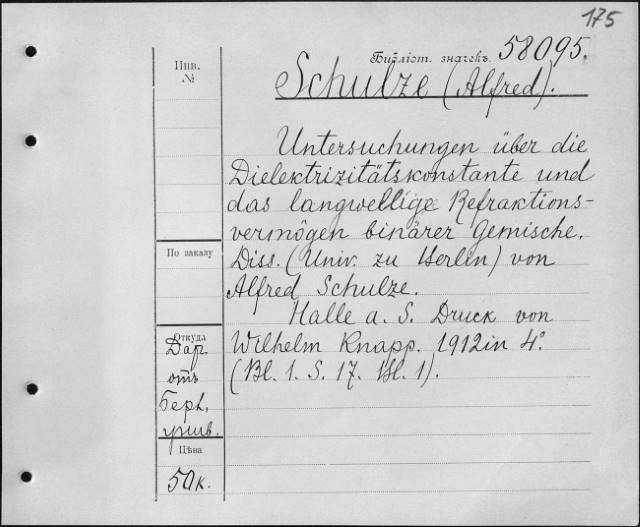 175
Библіот. значекъ 58095.
Schulze (Alfred).
Инв.
№
Untersuchungen über die
Dielektrizitätskonstante und
das langwellige Refraktions-
vermögen binärer Gemische.
Diss. (Univ. zu Berlin) von
Alfred Schulze.
Halle a. S. Druck von
Wilhelm Knapp. 1912 in 4°.
(Bl. 1. S. 17. Bl. 1).
По заказу
Откуда
Даръ
отъ
Берл.
унив.
Цѣна
50 к.